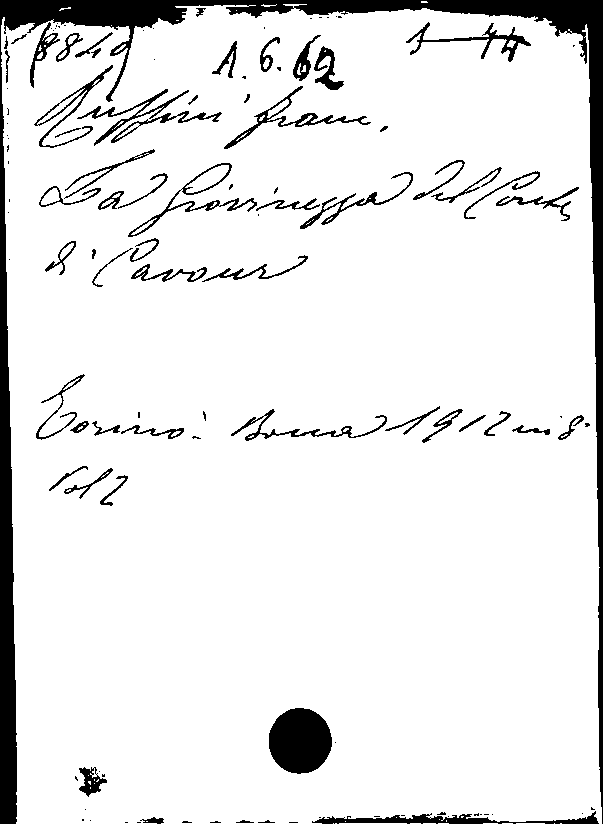 (8849) A.6.62
Ruffini Franc.
La Giovinezza del Conte
di Cavour
Torino: Bocca 1912 in 8°
Vol 2